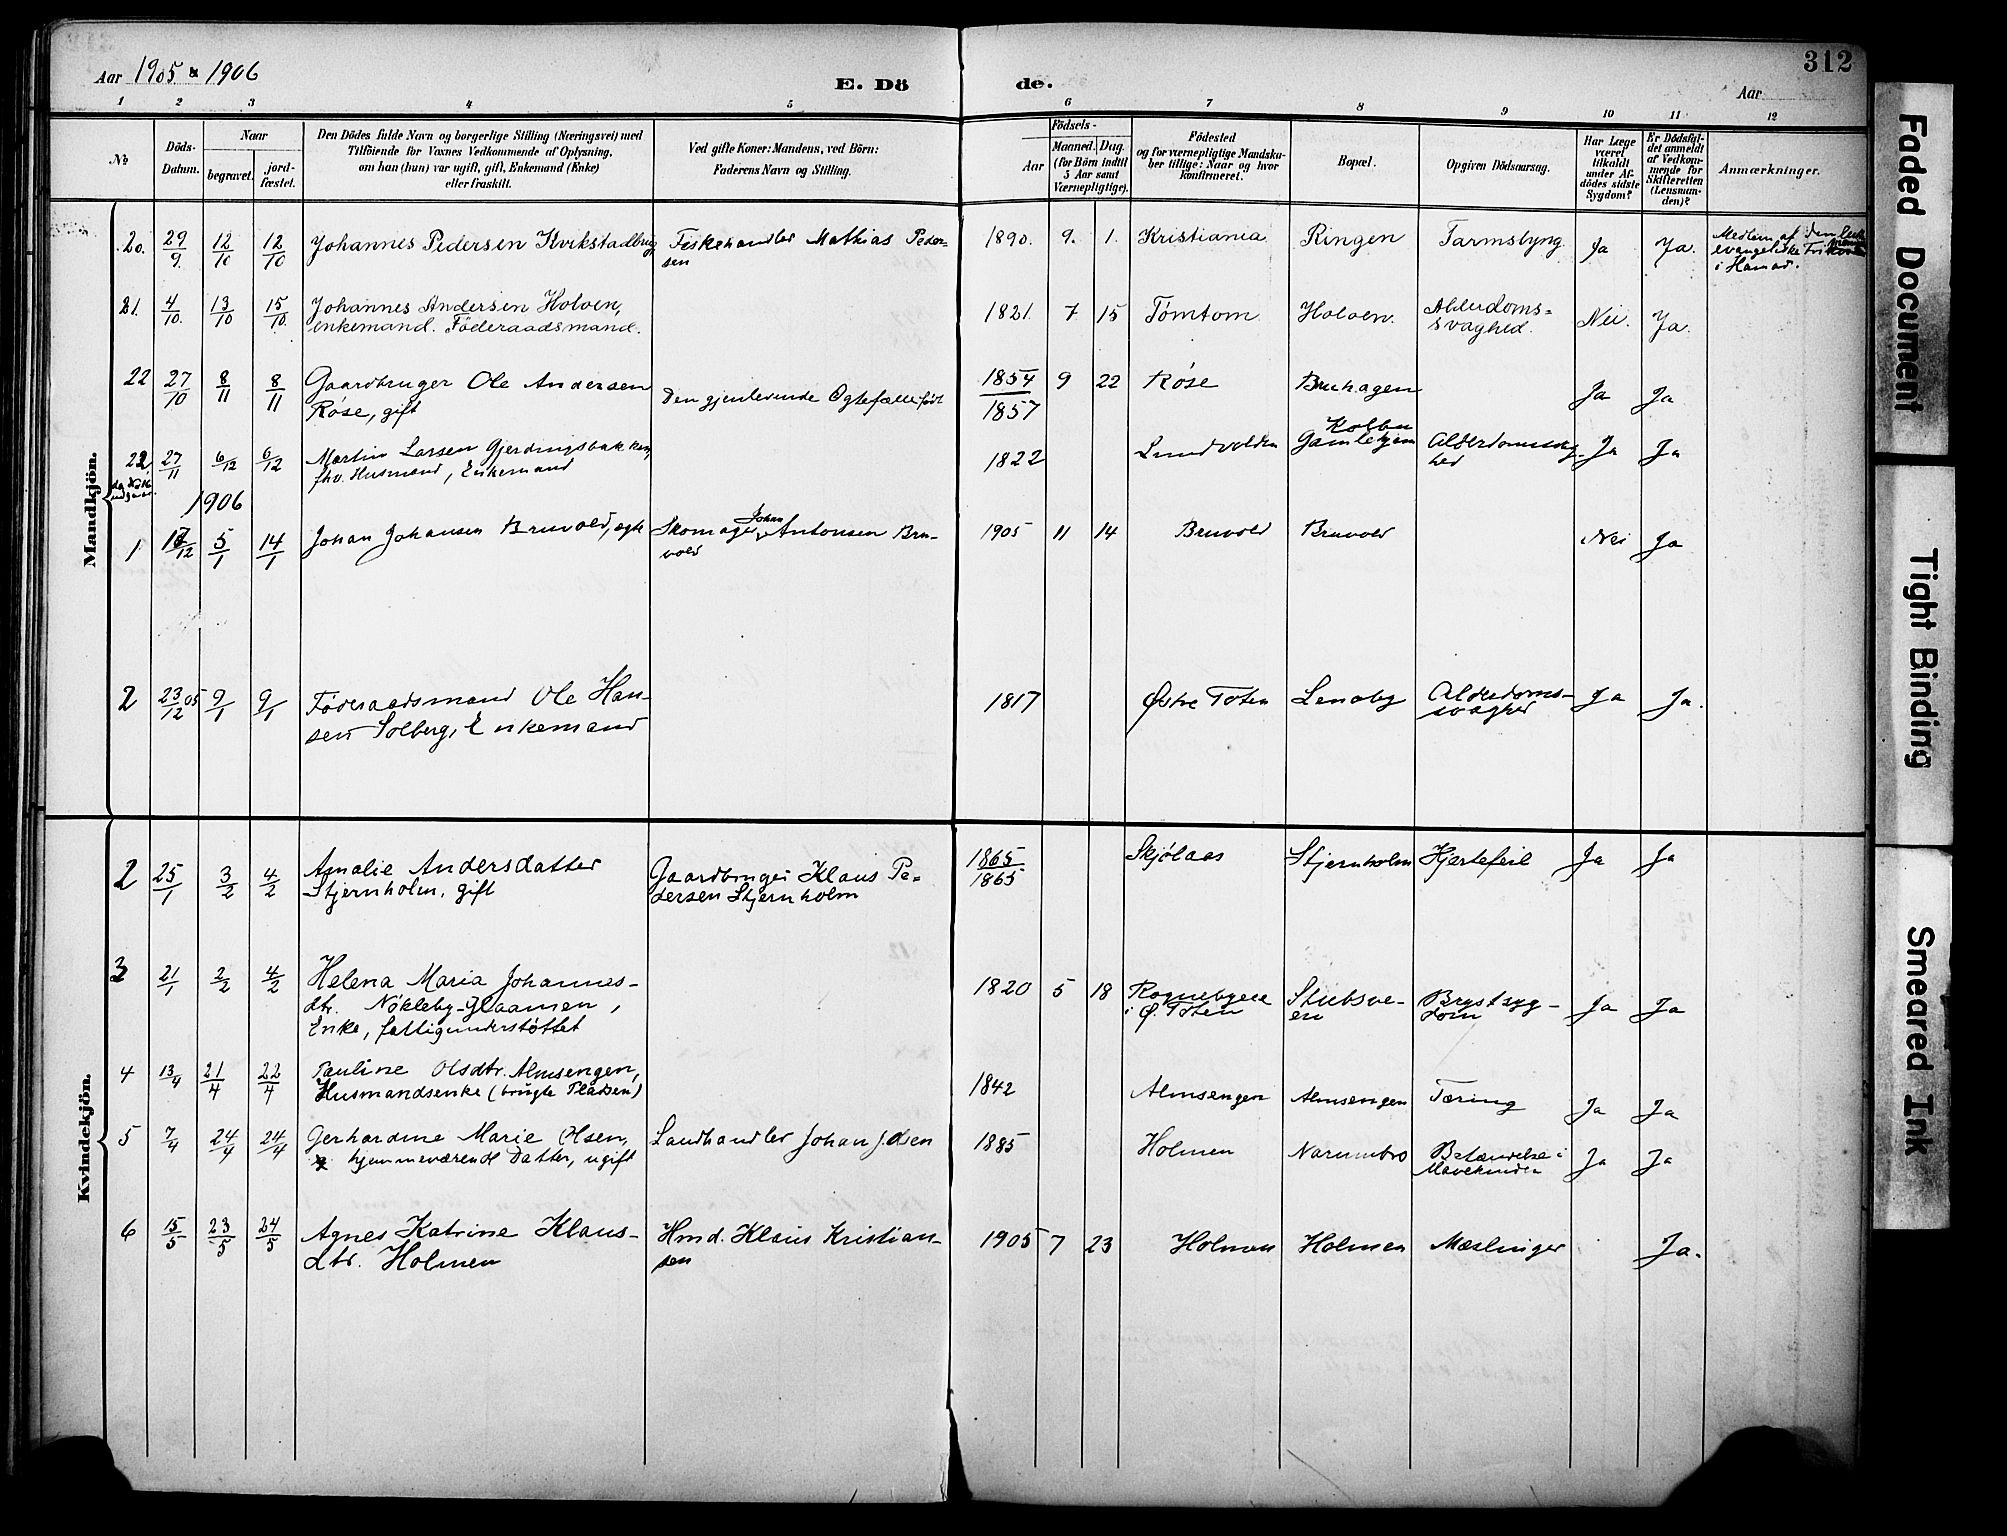 312
Aar 1905 & 1906
E. Dö de.
Aar
1 2 3 4 5 6 7 8 9 10 11 12
No
Döds-Datum.
Naar
begravet.
jord-fæstet.
Den Dödes fulde Navn og borgerlige Stilling (Næringsvei) med
Tilföiende for Voxnes Vedkommende af Oplysning,
om han (hun) var ugift, gift, Enkemand (Enke)
eller fraskilt.
Ved gifte Koner: Mandens, ved Börn:
Faderens Navn og Stilling.
Födsels-
Aar
Maaned. Dag.
(for Börn indtil
5 Aar samt
Værnepligtige).
Födested
og for værnepligtige Mandska-
ber tillige: Naar og hvor
konfirmeret.
Bopæl.
Opgiven Dödsaarsag.
Har Læge
været
tilkaldt
under Af-
dödes sidste
Sygdom?
Er Dödsfal-
det anmeldt
af Vedkom-
mende for
Skifteretten
(Lensman-
den)?
Anmærkninger.
Mandkjön.
20. 29/9. 12/10 12/10 Johannes Pedersen Kvikstadbrug Fiskehandler Mathias Peder-
sen
1890. 9. 1. Kristiania Ringen Tarmslyng. Ja Ja. Medlem af den
evangeliske
i Hamar.
21. 4/10. 13/10 15/10. Johannes Andersen Holoen,
enkemand. Föderaadsmand.
1821. 7 15 Tømtom Holoen. Alderdoms=
svaghed. Nei. Ja.
22 27/10 8/11 8/11 Gaardbruger Ole Andersen
Røse, gift
Den gjenlevende Ogtefælle født
1854 9 22 Røse Bruhagen Ja Ja
1857
22 27/11 6/12 6/12 Martin Larsen Gjerdingsbakken,
fhv. Husmand, Enkemand
1822 Lundvolden Kolbu
Gamlehjem Alderdomssvag-
hed Ja Ja
1906
1 5/1 14/1 Johan Johansen Bruvold, ægte Skomager Johan Antonsen Bru-
vold
1905 11 14 Bruvold Bruvold Nei Ja
2 23/12 05 9/1 9/1 Føderaadsmand Ole Han-
sen Solberg, Enkemand
1817 Østre Toten Lenaby Alderdoms-
svaghed Ja Ja.
Kvindekjön.
2 25/1 3/2 4/2 Amalie Andersdatter
Stjernholm, gift
Gaardbruger Klaus Pe-
dersen Stjernholm
1865
1865 Skjølaas Stjernholm Hjertefeil Ja Ja
3 21/1 2/2 4/2 Helena Maria Johannes-
dtr. Nøkleby-Glaamen,
Enke, fattigunderstøttet
1820 5 18 Rognebyeie
i Ø. Toten Stubsve-
en Brystsyg-
dom Ja Ja
4 13/4 21/4 22/4 Pauline Olsdtr. Almsengen,
Husmandsenke (brugte Pladsen)
1842 Almsengen Almsengen Tæring Ja Ja
5 7/4 24/4 24/4 Gerhardine Marie Olsen,
hjemmeværende Datter, ugift
Landhandler Johan Olsen
1885 Holmen Narumbro Betændelse i
Mavehinden Ja Ja
6 15/5 23/5 24/5 Agnes Katrine Klaus-
dtr. Holmen
Hmd. Klaus Kristian-
sen
1905 7 23 Holmen Holmen Mæslinger Ja.
Faded Document
Tight Binding
Smeared Ink